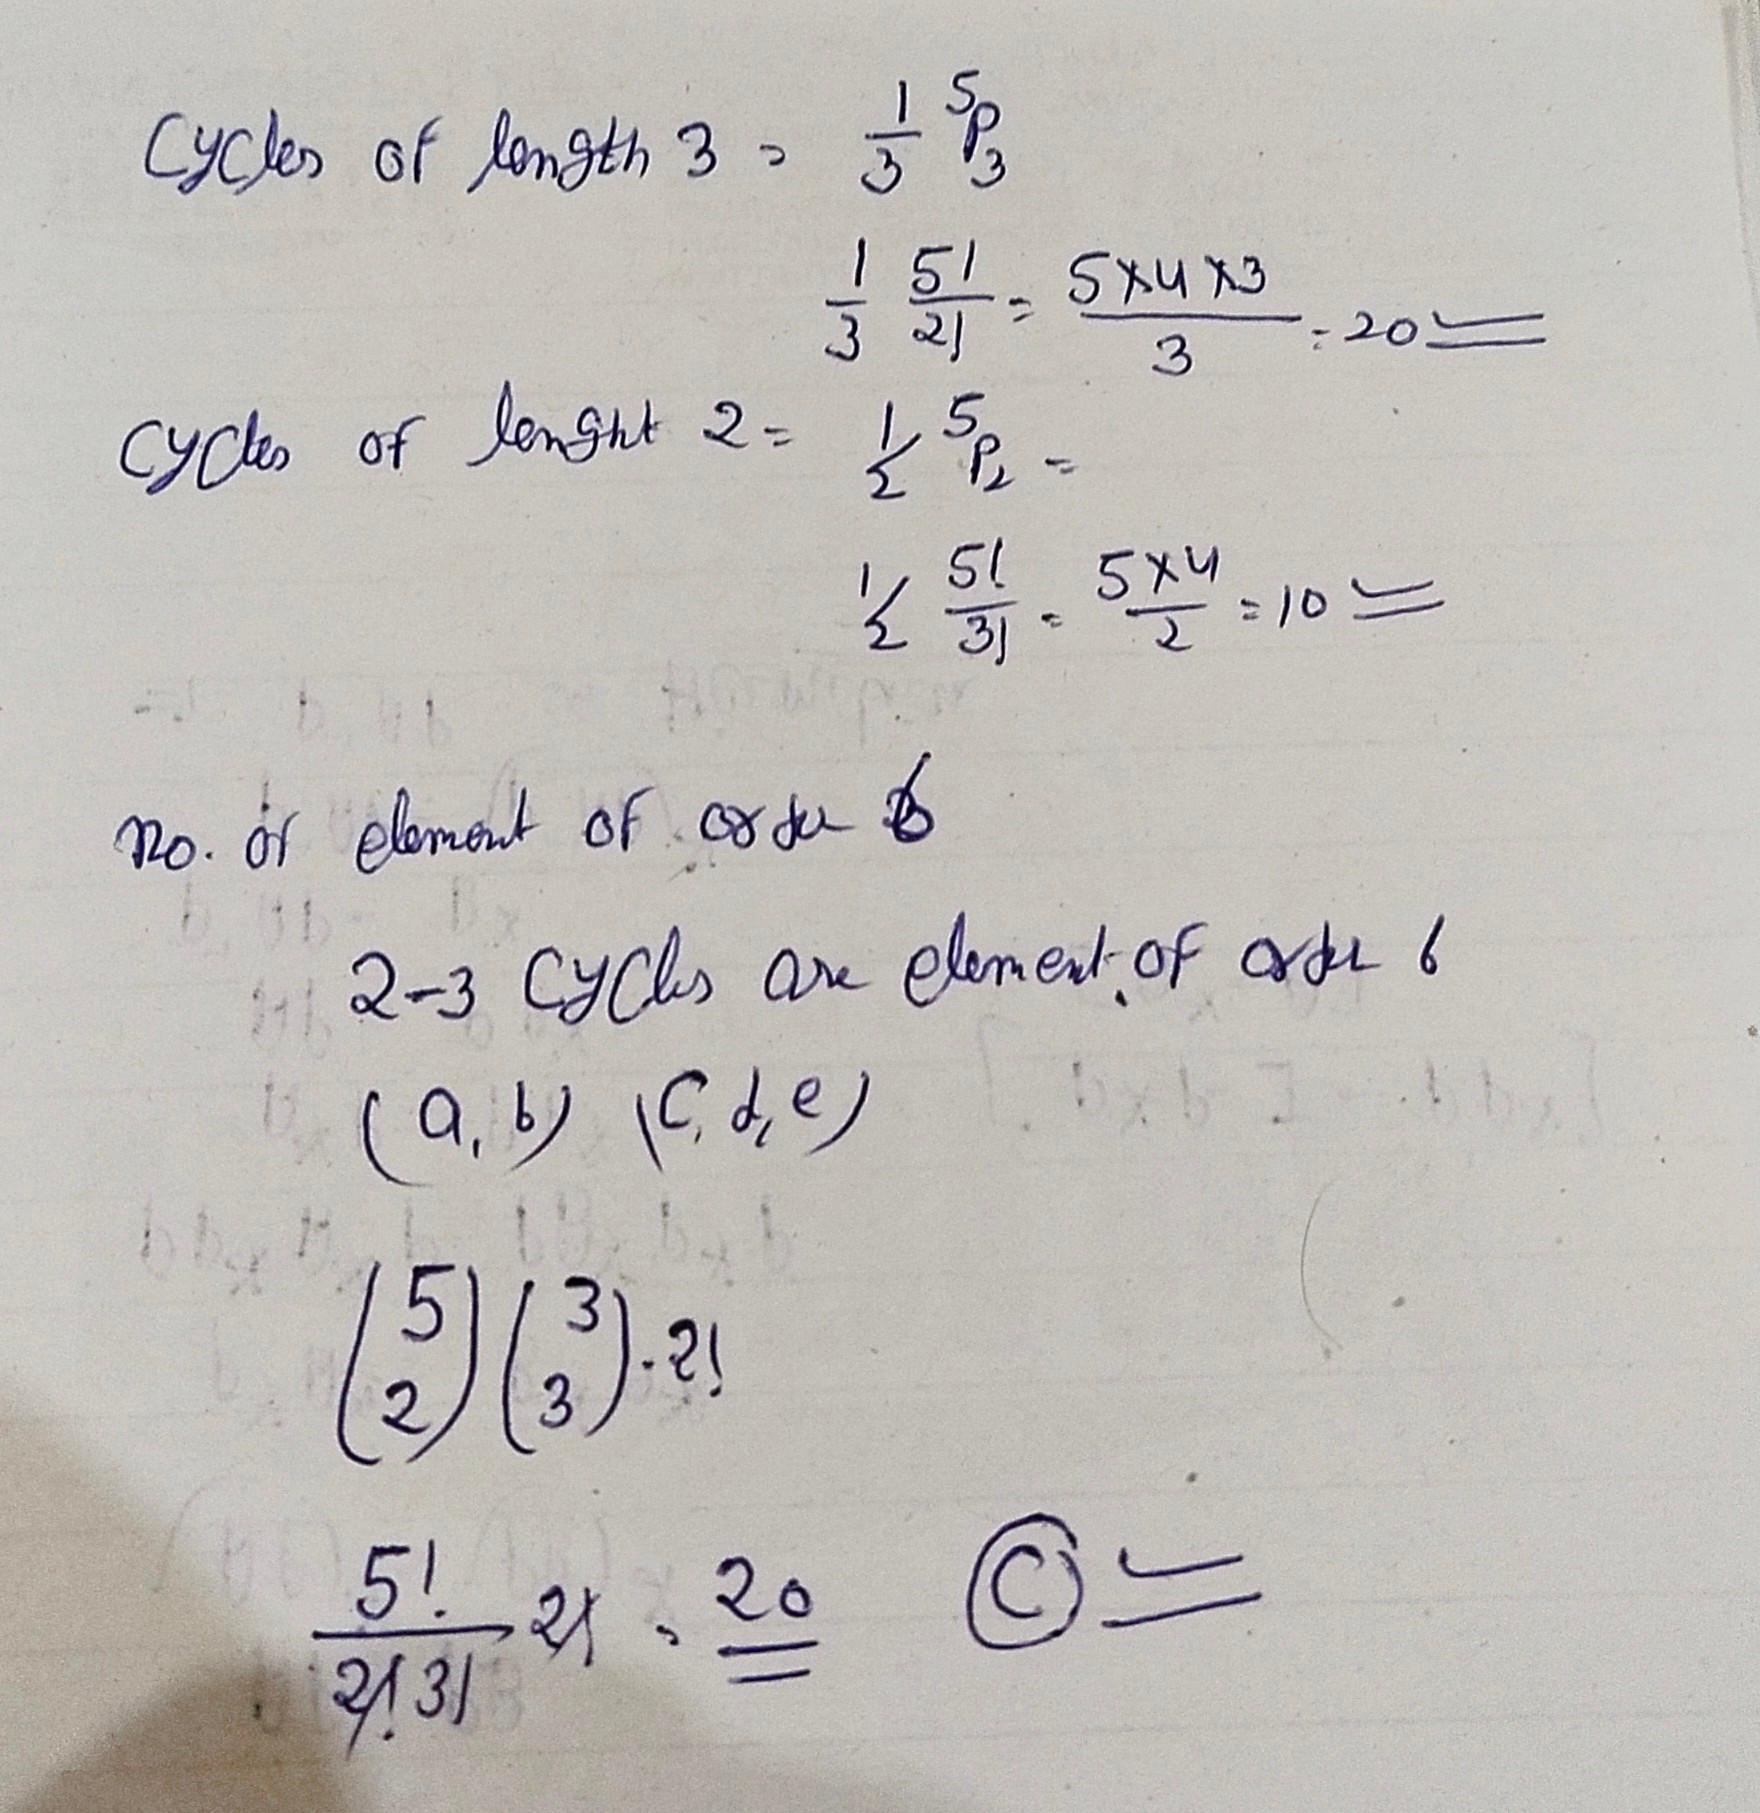 Cycles of length 3 = 1/3 ⁵P₃
1/3 5!/2! = 5×4×3/3 = 20
Cycles of lenght 2 = 1/2 ⁵P₂ =
1/2 5!/3! = 5×4/2 = 10
no. of element of order 6
2-3 Cycles are element of order 6
(a, b) (c, d, e)
(5 2) (3 3) . 2!
5!/2! 3! 2! = 20 C